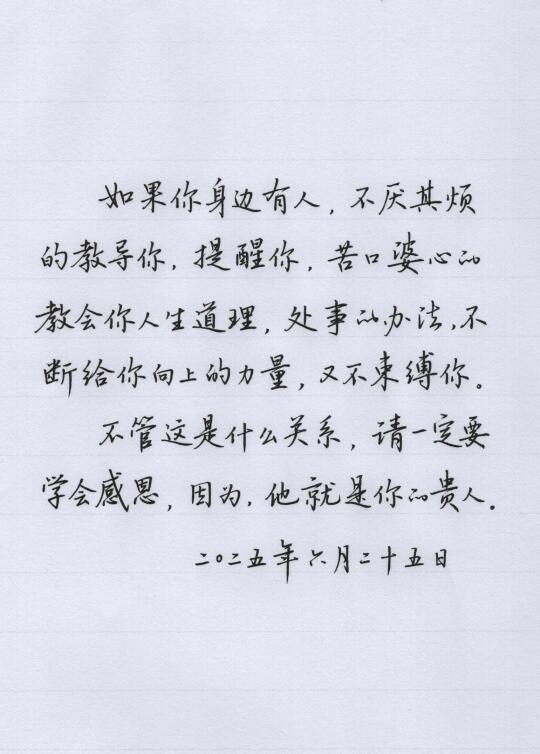 如果你身边有人，不厌其烦
的教导你，提醒你，苦口婆心的
教会你人生道理，处事的办法，不
断给你向上的力量，又不束缚你。
不管这是什么关系，请一定要
学会感恩，因为，他就是你的贵人。
二〇二五年六月二十五日